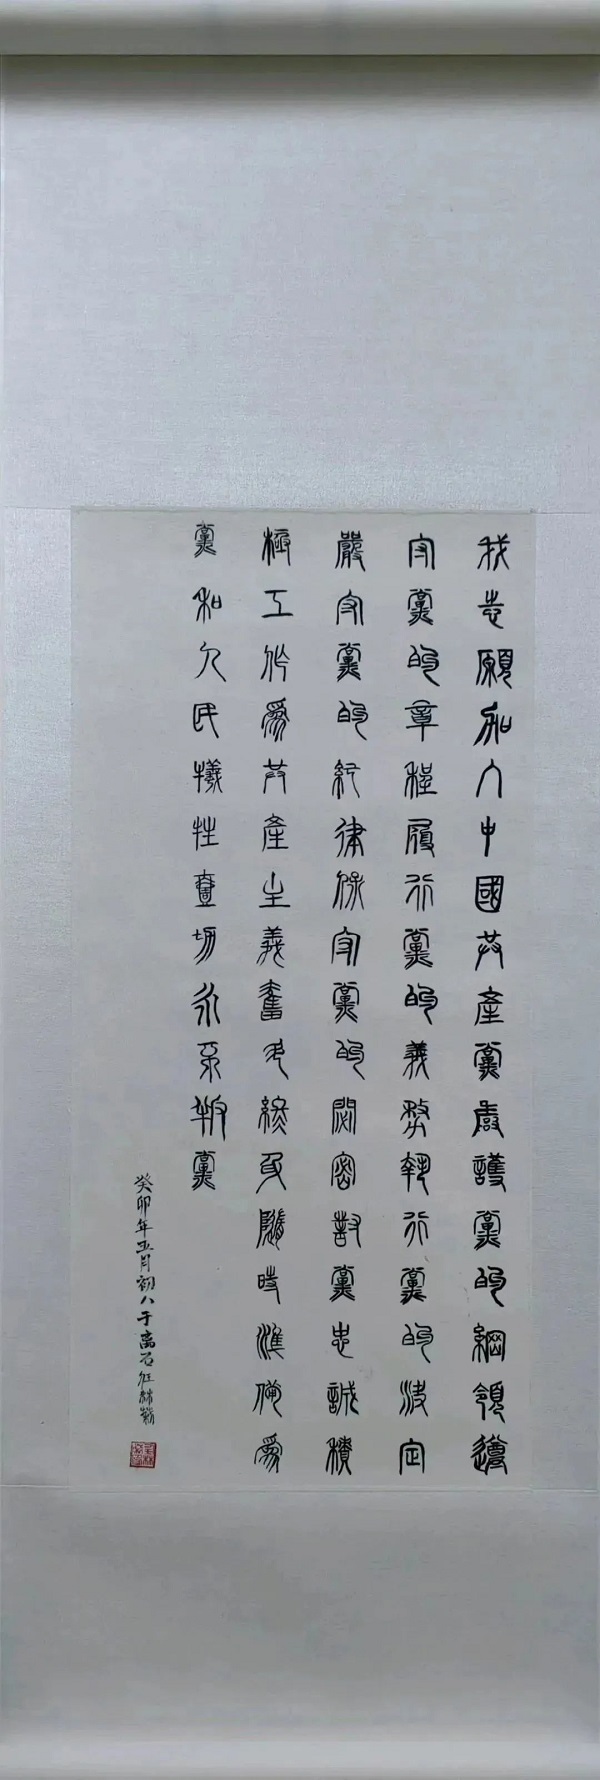 我志願加入中國共產黨擁護黨的綱領遵
守黨的章程履行黨的義務執行黨的決定
嚴守黨的紀律保守黨的閟密對黨忠誠積
極工作爲共產主義奮鬥終身隨時準備爲
黨和人民犧牲壹切永不叛黨
癸卯年五月初八于离石